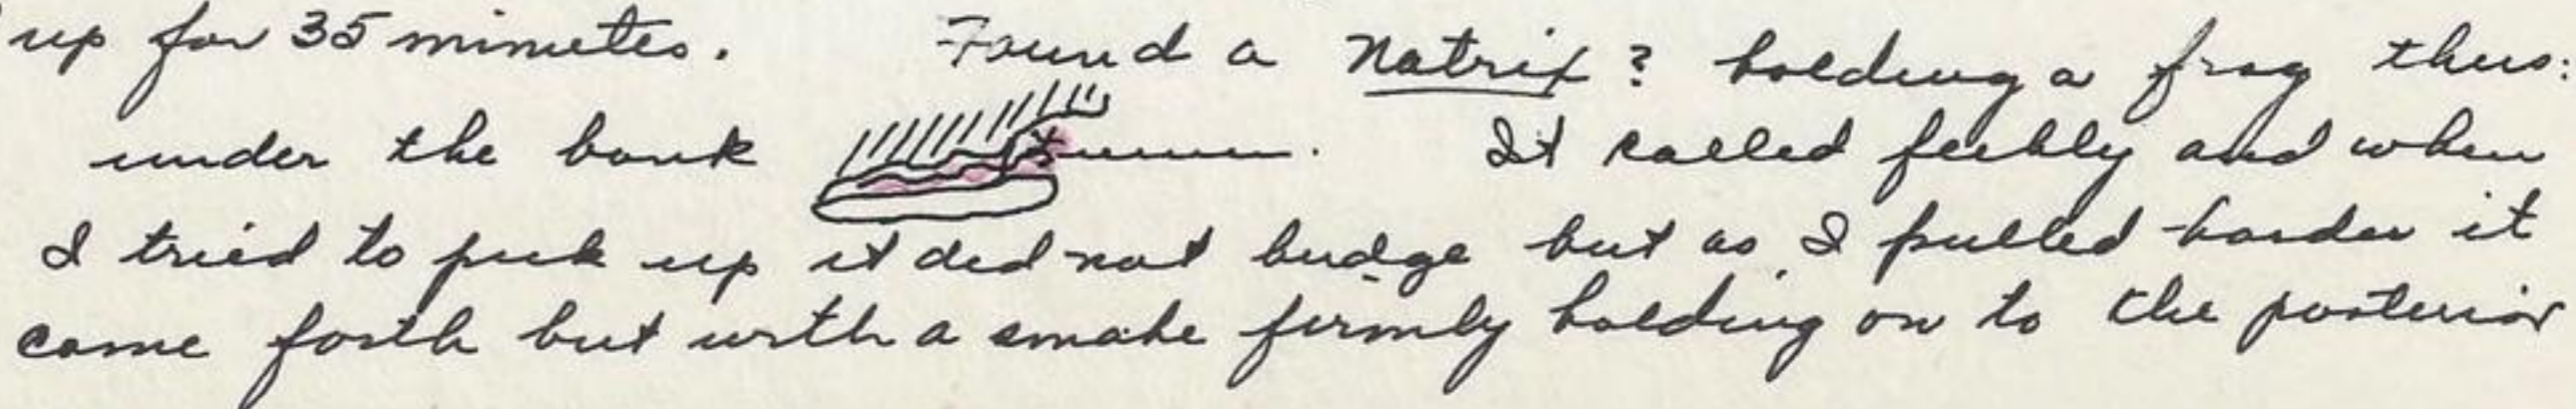 up for 35 minutes. Found a Natrix? holding a frog thus:
under the bank . It called feebly and when
I tried to pick up it did not budge but as I pulled harder it
came forth but with a snake firmly holding on to the posterior